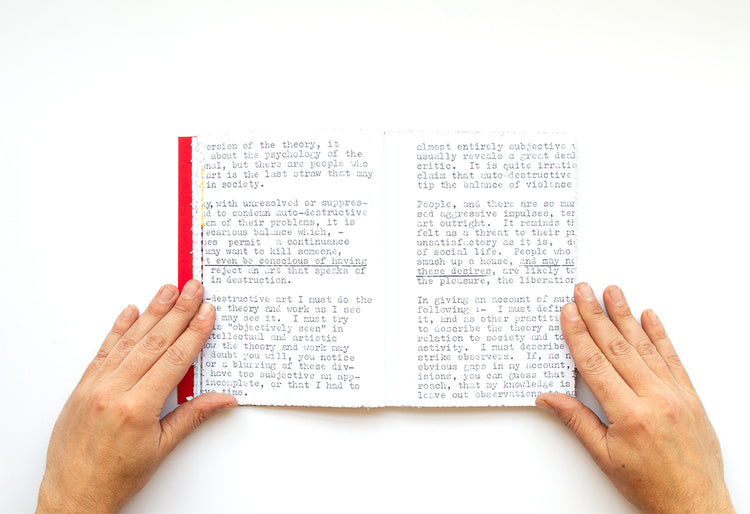 ersion of the theory, it
about the psychology of the
nal, but there are people who
art is the last straw that may
in society.
y, with unresolved or suppres-
d to condemn auto-destructive
em of their problems, it is
ecarious balance which, -
oes permit a continuance
may want to kill someone,
t even be conscious of having
reject an art that speaks of
in destruction.
-destructive art I must do the
he theory and work as I see
may see it. I must try
is "objectively seen" in
tellectual and artistic
ow the theory and work may
doubt you will, you notice
or a blurring of these div-
have too subjective an app-
incomplete, or that I had to
ve time.
almost entirely subjective
usually reveals a great deal
critic. It is quite irratio
claim that auto-destructive
tip the balance of violence
People, and there are so man
sed aggressive impulses, ten
art outright. It reminds th
felt as a threat to their pr
unsatisfactory as it is, d
of social life. People who
smash up a house, and may no
these desires, are likely to
the pleasure, the liberation
In giving an account of auto
following :- I must defin
it, and as other practiti
to describe the theory as
relation to society and to
activity. I must describe
strike observers. If, as n
obvious gaps in my account,
isions, you can guess that
roach, that my knowledge is
leave out observations to